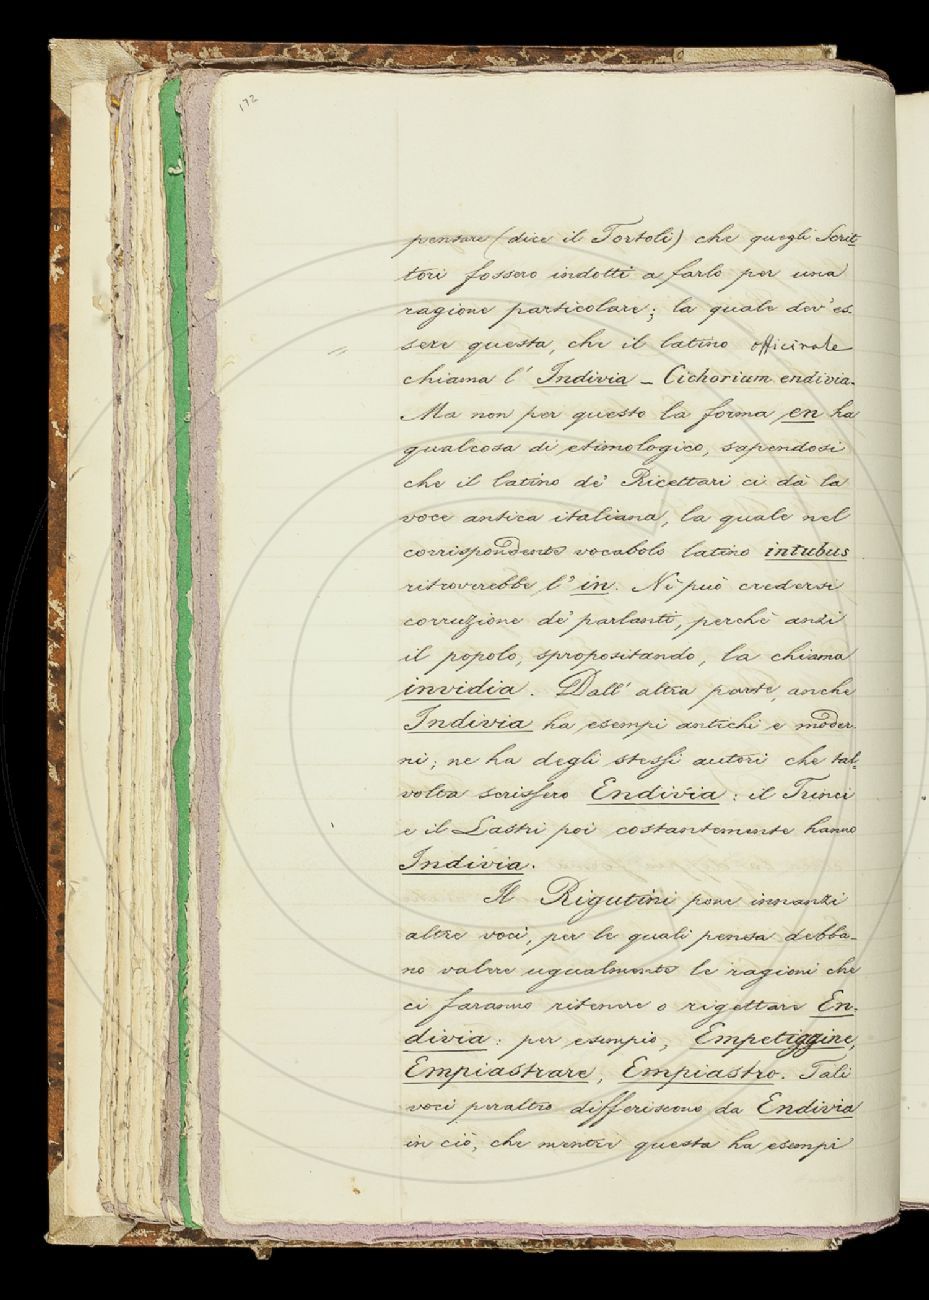 172
pensare (dice il Tortoli) che quegli Scrit-
tori fossero indotti a farlo per una
ragione particolare; la quale dev'es-
sere questa, che il latino officinale
chiama l'Indivia – Cichorium endivia.
Ma non per questo la forma en ha
qualcosa di etimologico, sapendosi
che il latino de' Ricettari ci dà la
voce antica italiana, la quale nel
corrispondente vocabolo latino intubus
ritroverebbe l'in. Nè può credersi
corruzione de' parlanti, perchè anzi
il popolo, spropositando, la chiama
invidia. Dall'altra parte, anche
Indivia ha esempi antichi e moder-
ni; ne ha degli stessi autori che tal-
volta scrissero Endivia: il Trinci
e il Lastri poi costantemente hanno
Indivia.
Il Rigutini pone innanzi
altre voci, per le quali pensa debba-
no valere ugualmente le ragioni che
ci faranno ritenere o rigettare En-
divia: per esempio, Empetiggine,
Empiastrare, Empiastro. Tali
voci peraltro differiscono da Endivia
in ciò, che mentre questa ha esempi